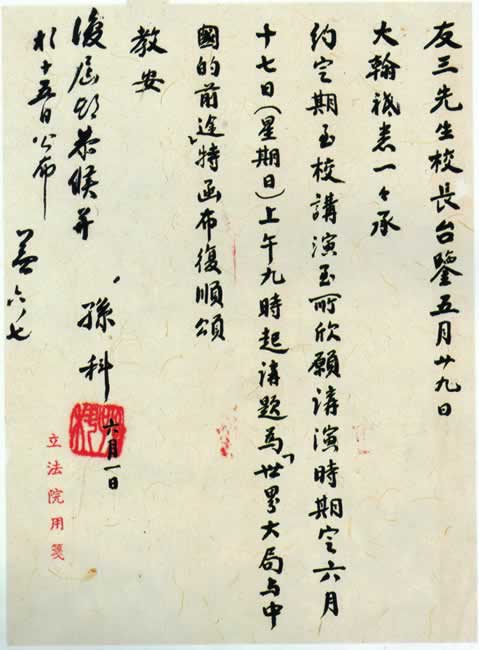 友三先生校長台鑒五月廿九日
大翰祗悉一々承
約定期至校講演至所欣願講演時期定六月
十七日(星期日)上午九時起講題為「世界大局与中
國的前途」特函布復順頌
教安
孫科
六月一日
復屆時恭候并
於十五日公布
六/七
立法院用箋